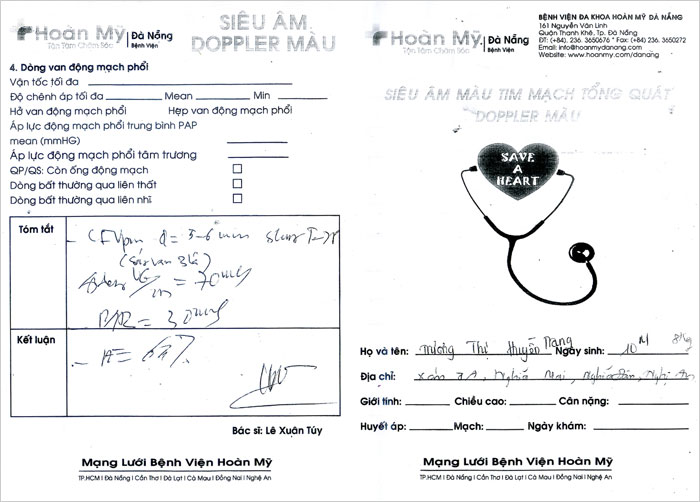 Hoàn Mỹ Đà Nẵng
Tận Tâm Chăm Sóc Bệnh Viện
SIÊU ÂM
DOPPLER MÀU
4. Dòng van động mạch phổi
Vận tốc tối đa
Độ chênh áp tối đa Mean Min
Hở van động mạch phổi Hẹp van động mạch phổi
Áp lực động mạch phổi trung bình PAP
mean (mmHG)
Áp lực động mạch phổi tâm trương
QP/QS: Còn ống động mạch
Dòng bất thường qua liên thất
Dòng bất thường qua liên nhĩ
Tóm tắt
d = 5-6 mm
= 70
= 30
Kết luận
Bác sĩ: Lê Xuân Túy
Mạng Lưới Bệnh Viện Hoàn Mỹ
TP.HCM I Đà Nẵng I Cần Thơ I Đà Lạt I Cà Mau I Đồng Nai I Nghệ An
Hoàn Mỹ Đà Nẵng
Tận Tâm Chăm Sóc Bệnh Viện
BỆNH VIỆN ĐA KHOA HOÀN MỸ ĐÀ NẴNG
161 Nguyễn Văn Linh
Quận Thanh Khê, Tp. Đà Nẵng
ĐT: (+84). 236. 3650676 * Fax: (+84). 236. 3650272
Email: info@hoanmydanang.com
Website: www.hoanmy.com/danang
SIÊU ÂM MÀU TIM MẠCH TỔNG QUÁT
DOPPLER MÀU
SAVE
A
HEART
Họ và tên: Trương Thị Huyền Trang Ngày sinh: 10 8kg
Địa chỉ: Xóm 3A, Nghĩa Mai, Nghĩa Đàn, Nghệ An
Giới tính: Chiều cao: Cân nặng:
Huyết áp: Mạch: Ngày khám:
Mạng Lưới Bệnh Viện Hoàn Mỹ
TP.HCM I Đà Nẵng I Cần Thơ I Đà Lạt I Cà Mau I Đồng Nai I Nghệ An